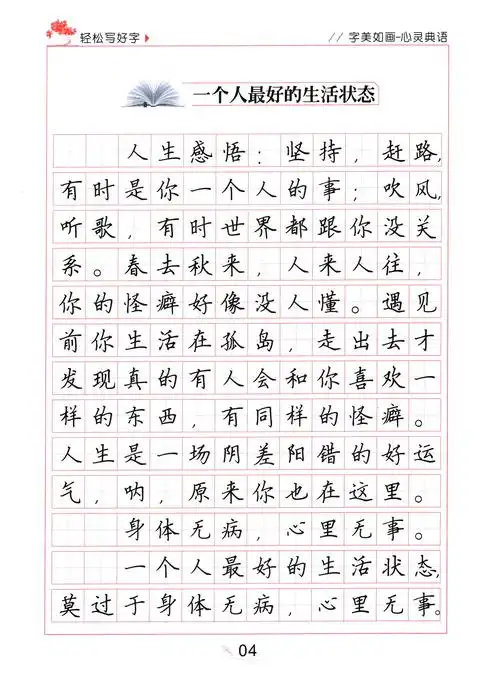 轻松写好字
// 字美如画-心灵典语
一个人最好的生活状态
人生感悟：坚持，赶路，
有时是你一个人的事；吹风，
听歌，有时世界都跟你没关
系。春去秋来，人来人往，
你的怪癖好像没人懂。遇见
前你生活在孤岛，走出去才
发现真的有人会和你喜欢一
样的东西，有同样的怪癖。
人生是一场阴差阳错的好运
气，呐，原来你也在这里。
身体无病，心里无事。
一个人最好的生活状态，
莫过于身体无病，心里无事。
04